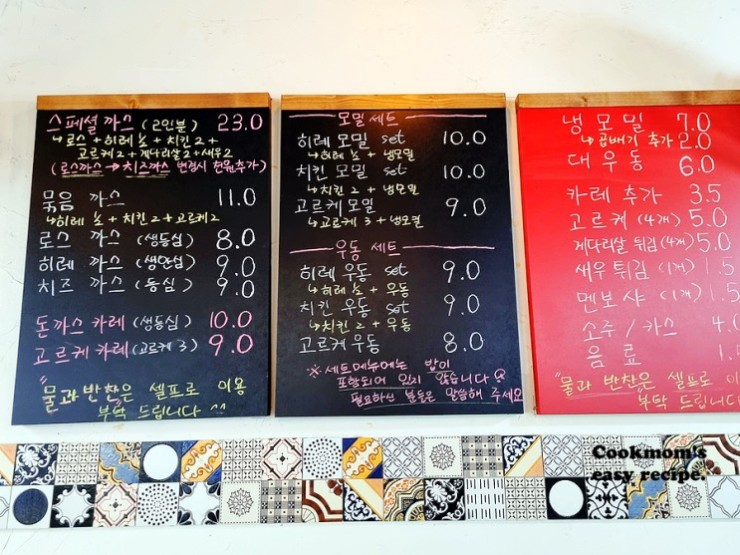 스페셜 까스 (2인분) 23.0
↳로스 + 히레 ½ + 치킨 2 +
고르케 2 + 게다리살 2 + 새우 2
(로스까스 → 치즈까스 변경시 천원추가)
묶음 까스 11.0
↳히레 ½ + 치킨 2 + 고르케 2
로스 까스 (생등심) 8.0
히레 까스 (생안심) 9.0
치즈 까스 (등심) 9.0
돈까스 카레 (생등심) 10.0
고르케 카레 (고르케 3) 9.0
"물과 반찬은 셀프로 이용
부탁 드립니다 ^^
모밀 세트
히레 모밀 set 10.0
↳히레 ½ + 냉모밀
치킨 모밀 set 10.0
↳치킨 2 + 냉모밀
고르케 모밀 9.0
↳고르케 3 + 냉모밀
우동 세트
히레 우동 set 9.0
↳히레 ½ + 우동
치킨 우동 set 9.0
↳치킨 2 + 우동
고르케 우동 8.0
※ 세트메뉴에는 밥이
포함되어 있지 않습니다
필요하신 분들은 말씀해 주세요
냉모밀 7.0
↳곱배기 추가 2.0
대우동 6.0
카레 추가 3.5
고르케 (4개) 5.0
게다리살 튀김 (4개) 5.0
새우 튀김 (1개) 1.5
멘보샤 (1개) 1.5
소주 / 카스 4.
음료 1.
"물과 반찬은 셀프로 이
부탁 드립니다
Cookmom's
easy recipe.